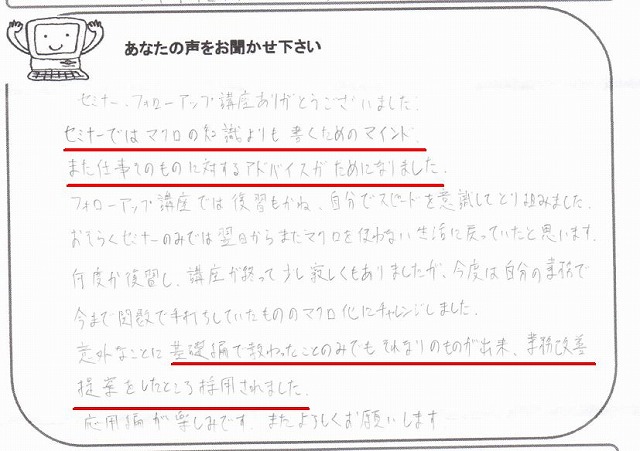 あなたの声をお聞かせ下さい
セミナー、フォローアップ講座ありがとうございました。
セミナーではマクロの知識よりも書くためのマインド、
また仕事そのものに対するアドバイスがためになりました。
フォローアップ講座では復習もかね、自分でスピードを意識してとり組みました。
おそらくセミナーのみでは翌日からまたマクロを使わない生活に戻っていたと思います。
何度か復習し、講座が終って少し寂しくもありましたが、今度は自分の業務で
今まで関数で手打ちしていたもののマクロ化にチャレンジしました。
意外なことに基礎編で教わったことのみでもそれなりのものが出来、業務改善
提案をしたところ採用されました。
応用編が楽しみです。またよろしくお願いします